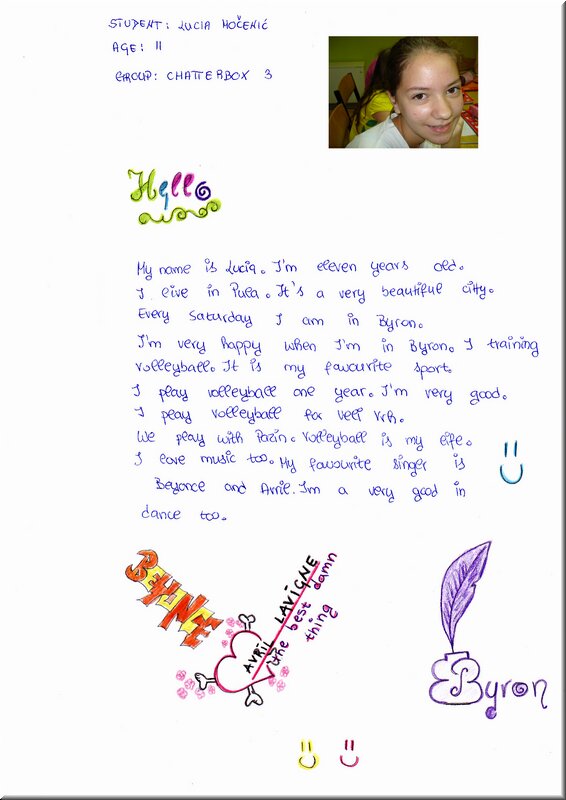 STUDENT: LUCIA MOČENIĆ
AGE: 11
GROUP: CHATTERBOX 3
Hello
My name is Lucia. I'm eleven years old.
I live in Pula. It's a very beautiful city.
Every Saturday I am in Byron.
I'm very happy when I'm in Byron. I training
volleyball. It is my favourite sport.
I play volleyball one year. I'm very good.
I play volleyball for Veli Vrh.
We play with Pazin. Volleyball is my life.
I love music too. My favourite singer is
Beyonce and Avril. I'm a very good in
dance too.
BEYONCE
AVRIL LAVIGNE
the best damn
thing
Byron